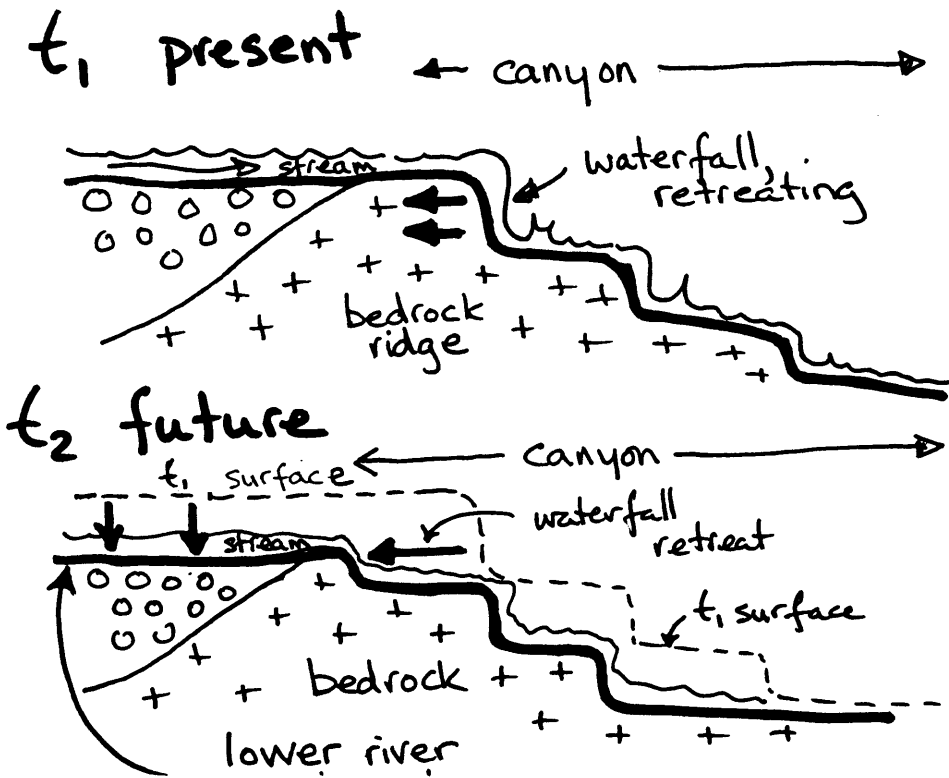 t₁ present
← canyon →
stream
waterfall,
retreating
bedrock
ridge
t₂ future
← canyon →
t₁ surface
stream
waterfall
retreat
t₁ surface
bedrock
lower river